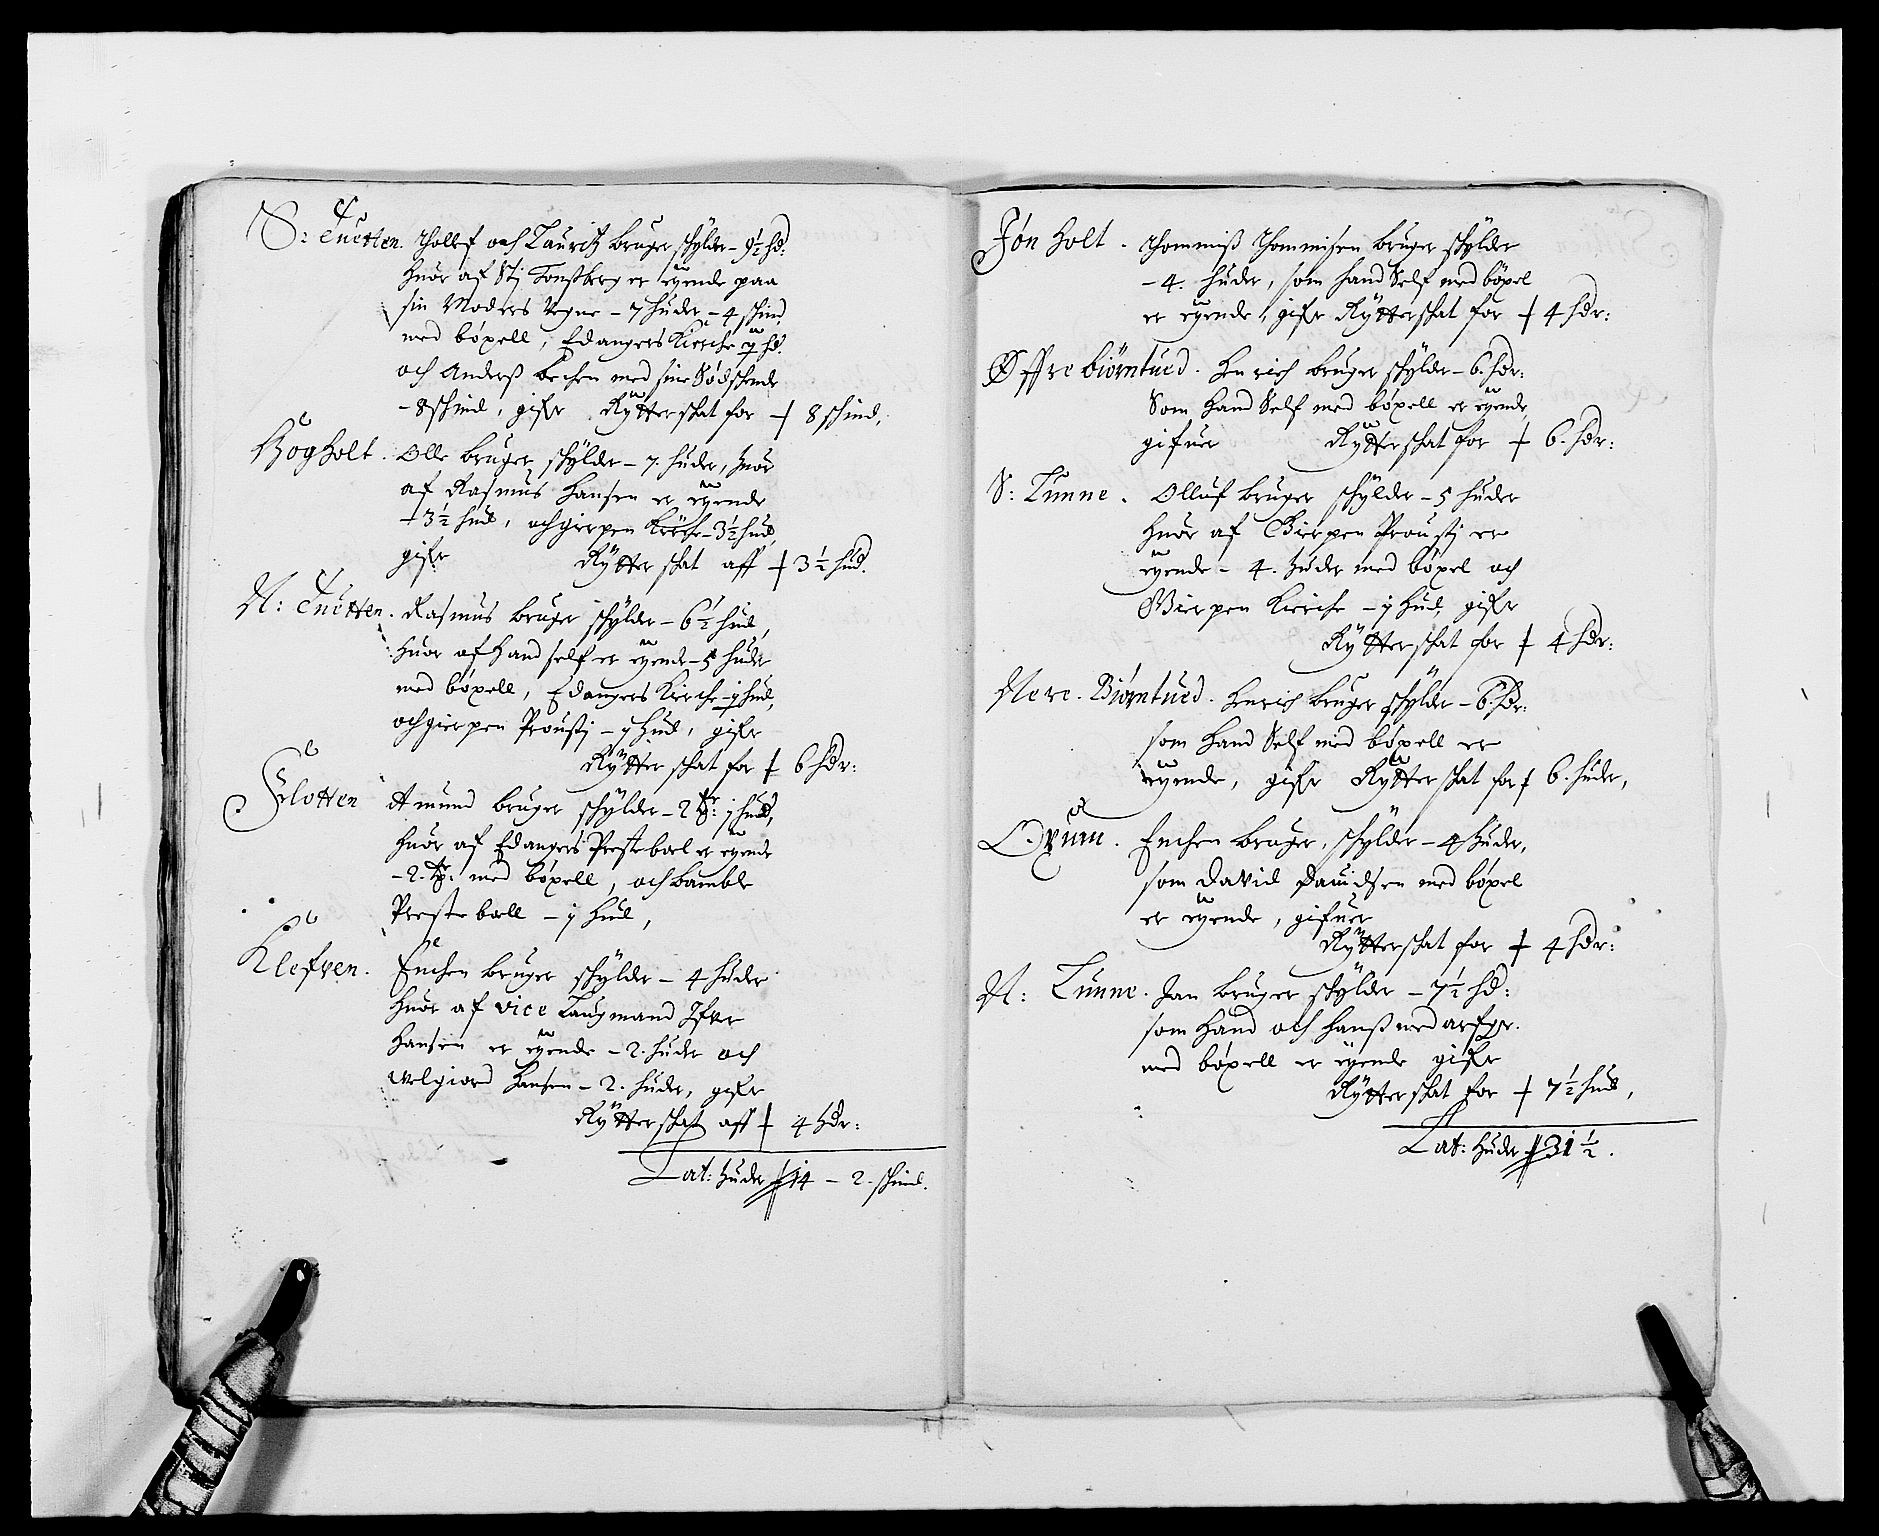 S: Tuetten. Tholluf och Lauritz bruger schylder - 9½ hd:
huor af Stj Tonsberg er eyende paa
sin Moders Vegne - 7 huder - 4 schind
med böxell, Edangers Kierche j hd.
och Anderss bechen med sine Sødschende
- 8 schind, gifr Rytterschat for + 8 schind,
Høgholt. Olle bruger schylder - 7. huder, huor
af Rasmus Hansen er eyende
+ 3½ hud, och gierpen Kirche - 3½ hud,
gifr Rytterschat aff + 3½ hud.
N: Tuetten. Rasmus bruger schylder - 6½ hud,
huor af hand self er eyende - 5 huder
med böxell, Edangers Kirche - j hud,
och gierpen Proustj - j hud, gifr
Rytterschat for + 6 hdr:
Slotten Amund bruger schylder - 2 tr: j hud,
huor af Edangers Prestebol er eyende
- 2. tr: med böxell, och bamble
Preste boll - j hud,
Klefven. Enchen bruger schylder - 4 huder
huor af vice Laugmand Ifver
Hansen er eyende - 2. huder och
Velgiord Hansen - 2. huder, gifr
Rytterschat aff + 4 hdr:
Lat: huder 14 - 2. schind.
Jønholt. Thommiss Thommisen bruger schylder
- 4. huder, som hand Self med böxel
er eyende, gifr Rytterschat for + 4 hdr:
Øffre biörntued. Henrich bruger schylder - 6. hdr:
Som hand Self med böxell er eyende,
gifuer Rytterschat for + 6. hdr:
S: Lunne. Olluf bruger schylder - 5 huder
huor af Gierpen Proustj er
eyende - 4. huder med böxel och
Gierpen Kierche - j hud, gifr
Rytterschat for + 4 hdr:
Nere. Biörntued. Henrich bruger schylder - 6. hdr:
som hand Self med böxell er
eyende, gifr Rytterschat for + 6. huder,
Ørum. Enchen bruger, schylder - 4 huder,
som David Dauidsen med böxel
er eyende, gifuer
Rytterschat for + 4 hdr:
N: Lunne. Jan bruger schylder - 7½ hd:
som hand och hanss med arfgr.
med böxell er eyende gifr
Rytterschat for + 7½ hud,
Lat: huder 31½.